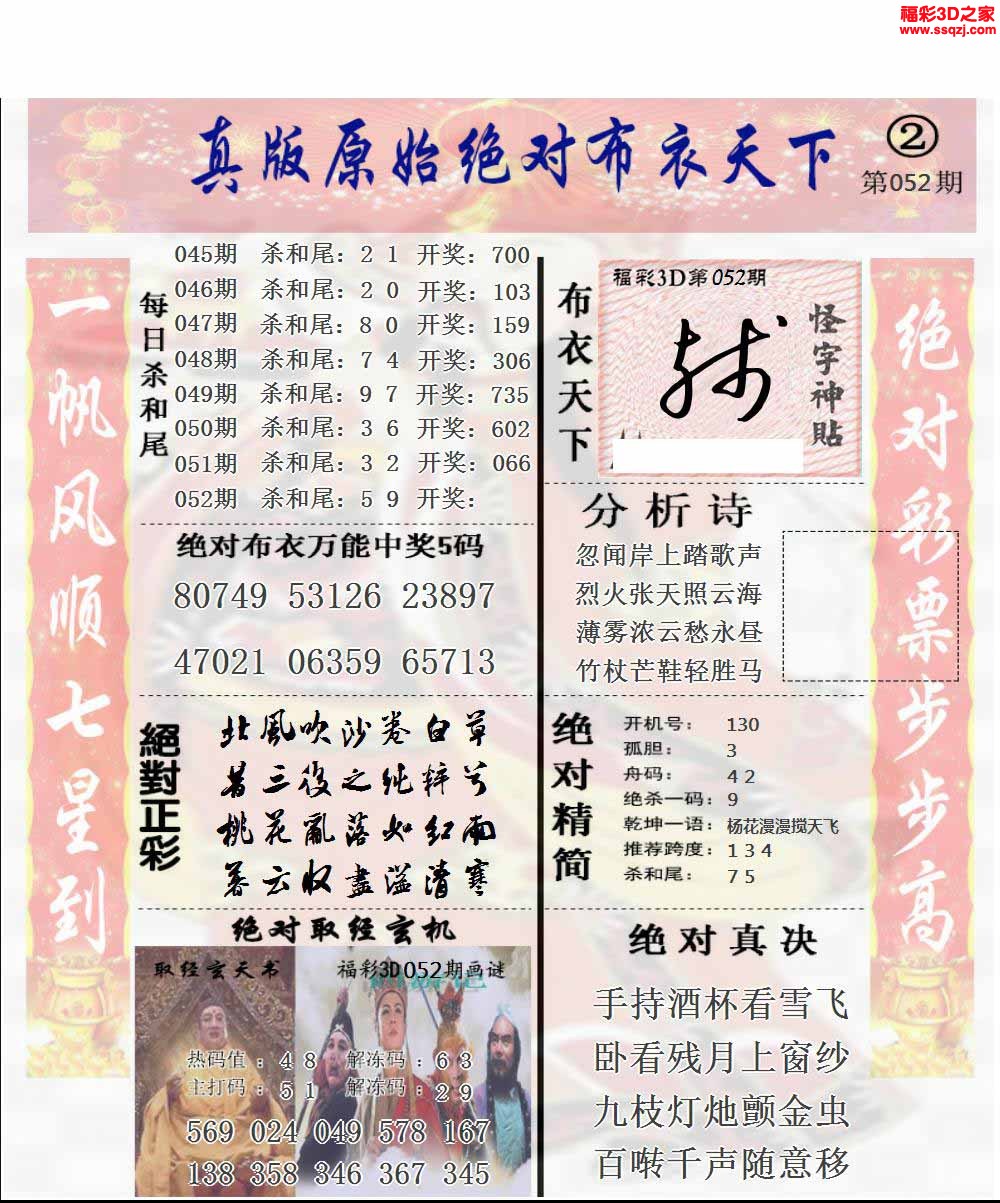 福彩3D之家
www.ssqzj.com
真版原始绝对布衣天下
②
第052期
一帆风顺七星到
每日杀和尾
045期 杀和尾：2 1 开奖：700
046期 杀和尾：2 0 开奖：103
047期 杀和尾：8 0 开奖：159
048期 杀和尾：7 4 开奖：306
049期 杀和尾：9 7 开奖：735
050期 杀和尾：3 6 开奖：602
051期 杀和尾：3 2 开奖：066
052期 杀和尾：5 9 开奖：
绝对布衣万能中奖5码
80749 53126 23897
47021 06359 65713
絕對正彩
北風吹沙卷白草
昔三後之纯粹兮
桃花亂落如红雨
暮云收盡溢清寒
绝对取经玄机
取经玄天书
福彩3D052期画谜
热码值：4 8 解冻码：6 3
主打码：5 1 解冻码：2 9
569 024 049 578 167
138 358 346 367 345
布衣天下
福彩3D第052期
怪字神貼
分析诗
忽闻岸上踏歌声
烈火张天照云海
薄雾浓云愁永昼
竹杖芒鞋轻胜马
绝对精简
开机号： 130
孤胆： 3
舟码： 4 2
绝杀一码：9
乾坤一语：杨花漫漫搅天飞
推荐跨度：1 3 4
杀和尾： 7 5
绝对真决
手持酒杯看雪飞
卧看残月上窗纱
九枝灯灺颤金虫
百啭千声随意移
绝对彩票步步高